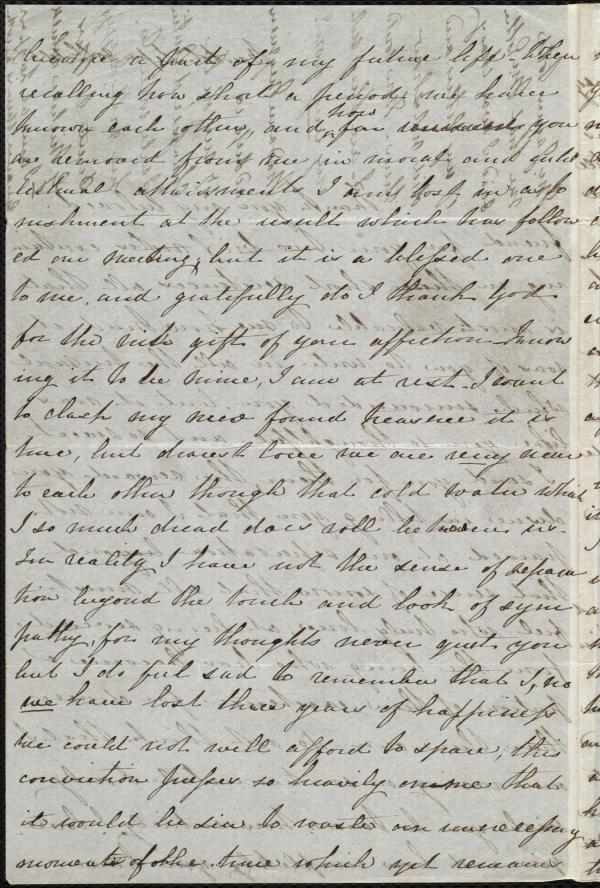 become a part of my future life - When
recalling how short a period we have
known each other, and how far you
are removed from me in moral and intel
lectual attainments I am lost in asto
nishment at the result which has follow
ed our meeting, but it is a blessed one
to me, and gratefully do I thank God
for the rich gift of your affection - Know
ing it to be mine, I am at rest - I want
to clasp my new found treasure it is
true, but dearest Love we are very near
to each other though that cold water which
I so much dread does roll between us -
In reality I have not the sense of separa
tion beyond the touch and look of sym
pathy, for my thoughts never quit you
but I do feel sad to remember that I, no
we have lost three years of happiness
we could not well afford to spare, this
conviction presses so heavily on me that
it would be sin to waste an unnecessary
moment of the time which yet remains